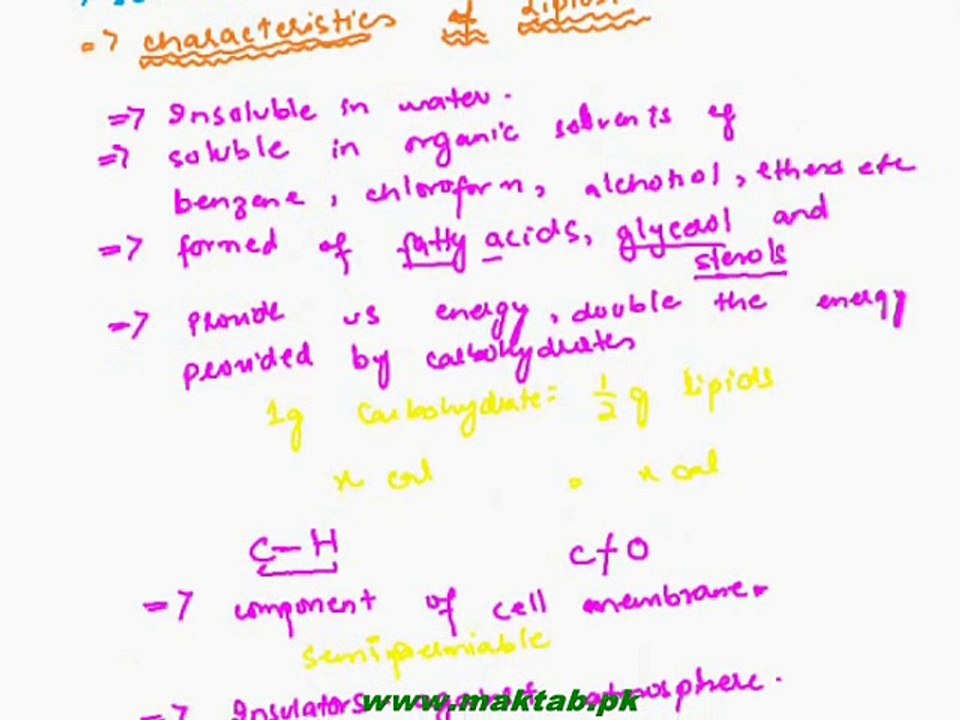 => characteristics of Lipids
=> Insoluble in water.
=> soluble in organic solvents of
benzene, chloroform, alchohol, ethers etc
=> formed of fatty acids, glycerol and
sterols
=> provide us energy, double the energy
provided by carbohydrates
1g carbohydrate = 1/2 g lipids
x cal = x cal
C-H C+O
=> component of cell membrane.
semipermiable
=> Insulators against atmosphere.
www.maktab.pk